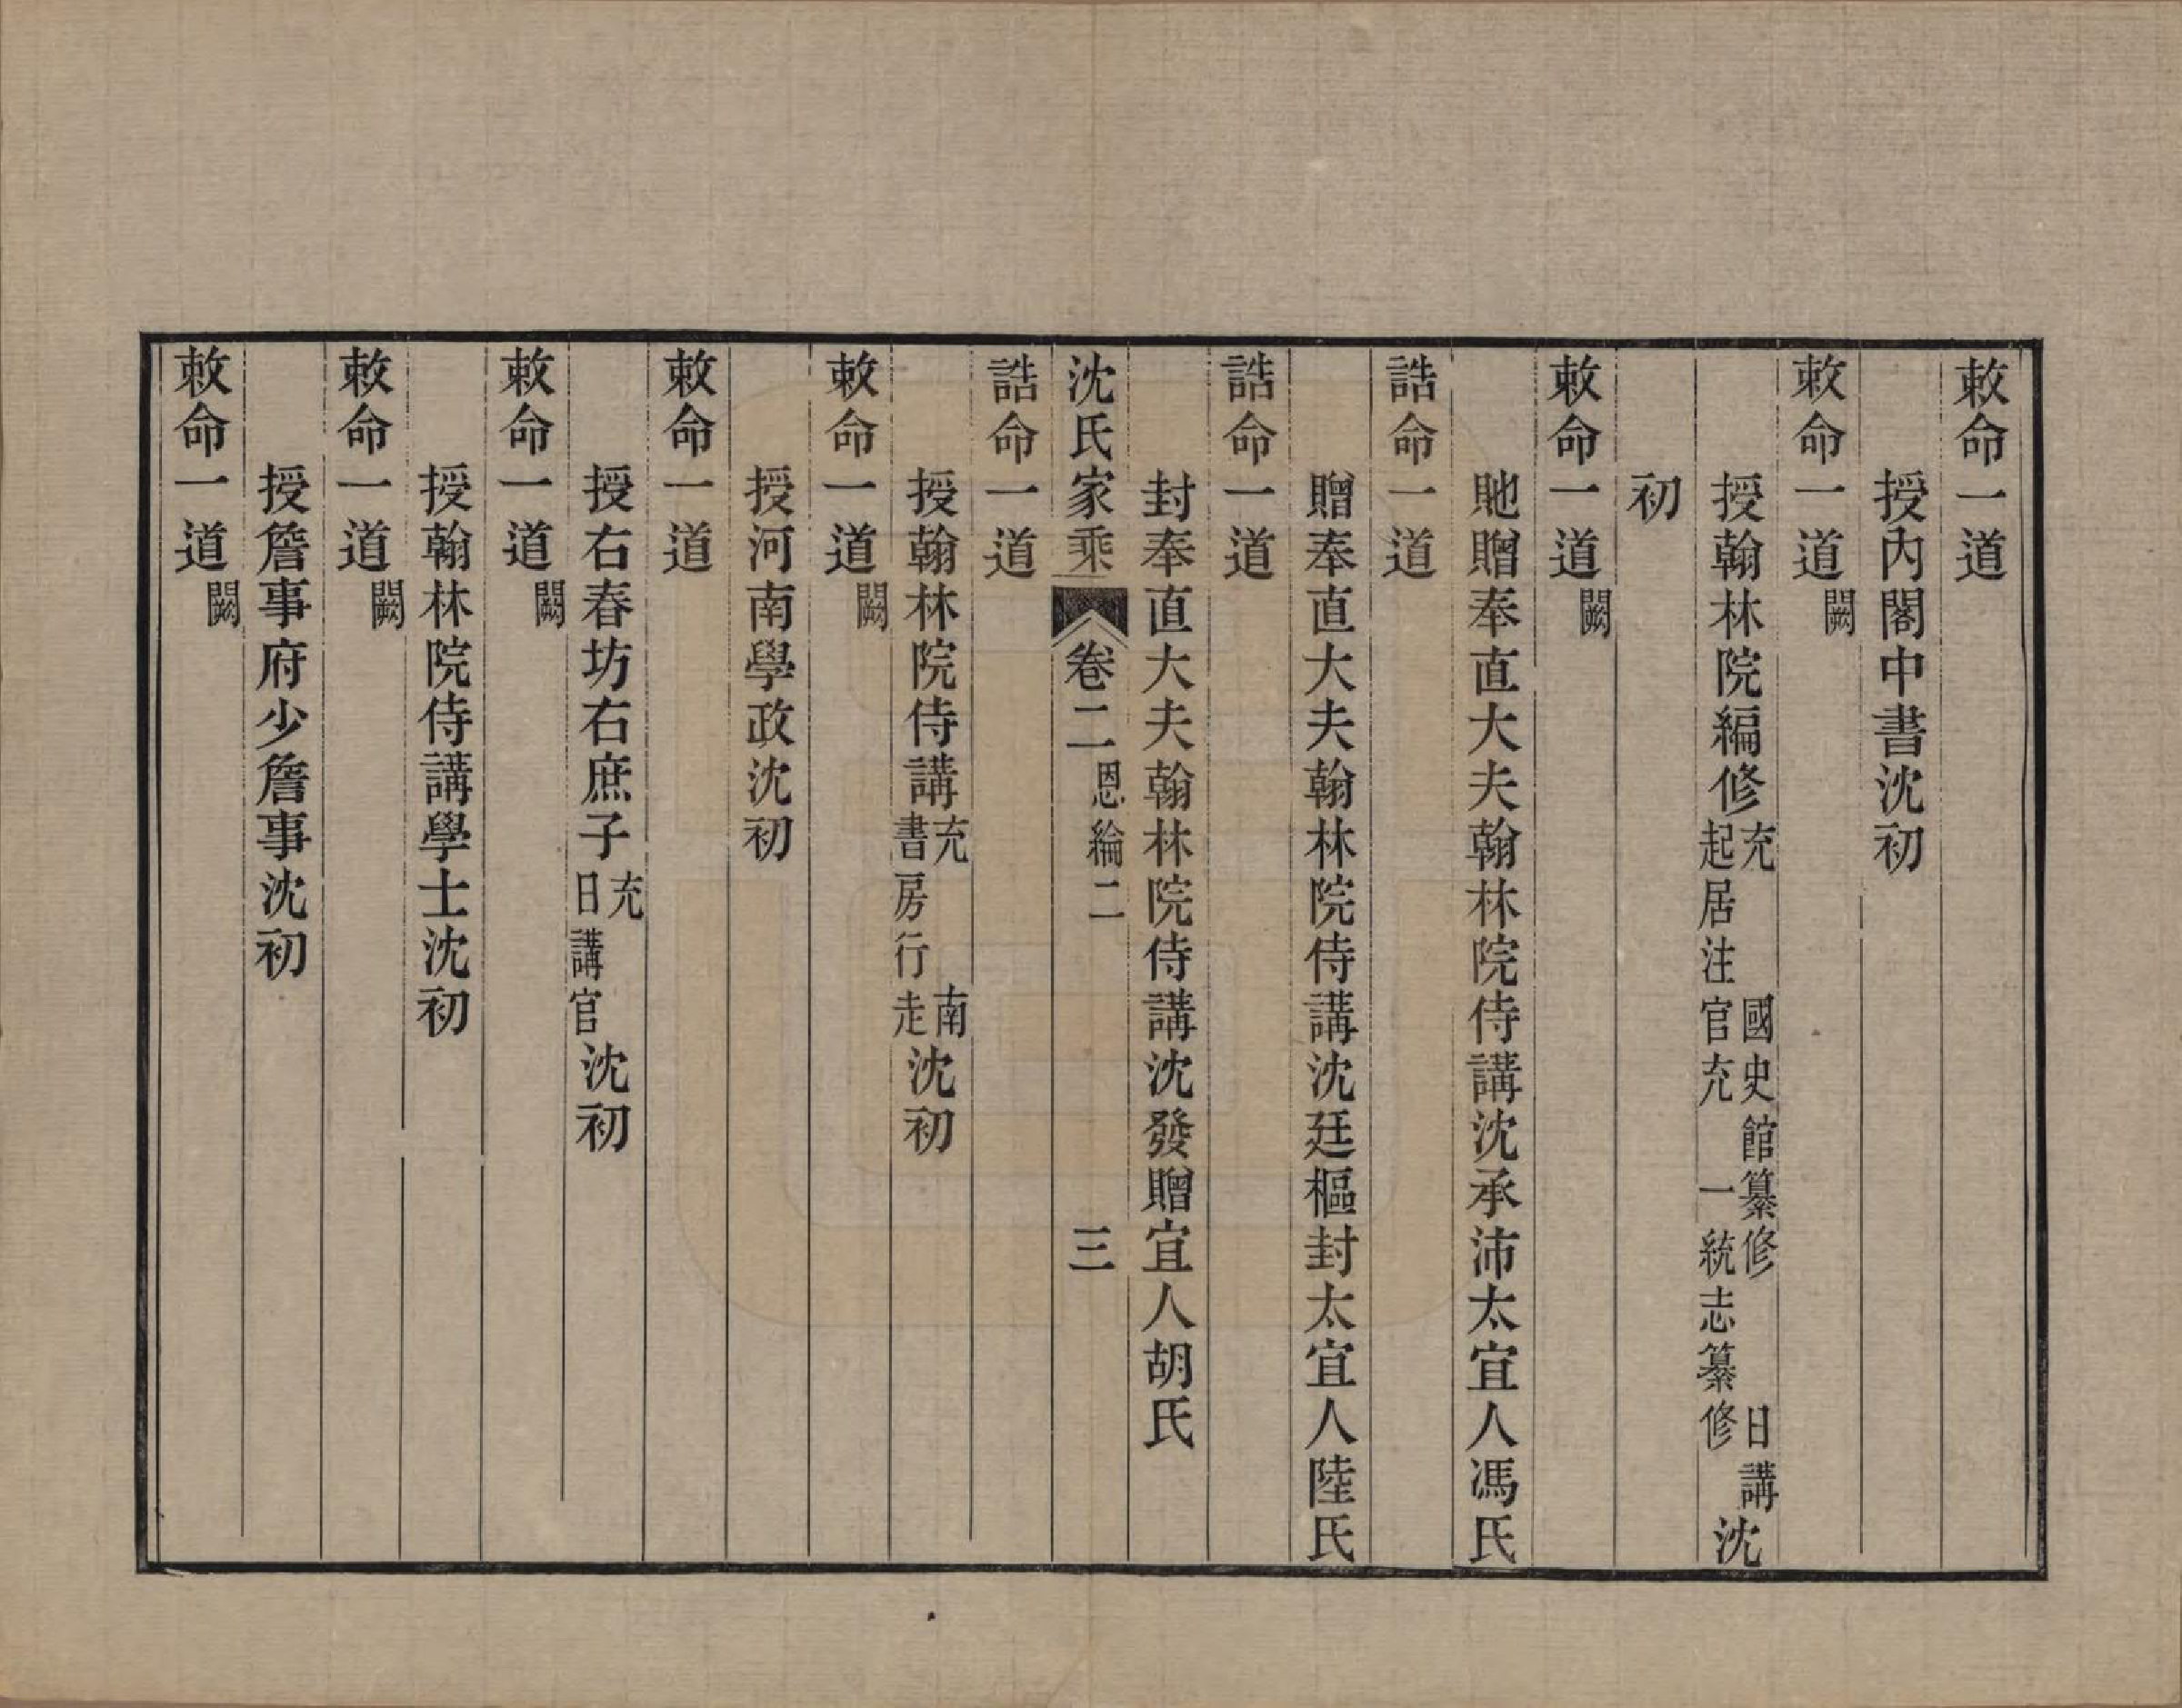 敕命一道
授內閣中書沈初
敕命一道闕
授翰林院編修充國史館纂修日講起居注官充一統志纂修沈
初
敕命一道闕
貤贈奉直大夫翰林院侍講沈承沛太宜人馮氏
誥命一道
贈奉直大夫翰林院侍講沈廷樞封太宜人陸氏
誥命一道
封奉直大夫翰林院侍講沈發贈宜人胡氏
沈氏家乘卷二恩綸二三
誥命一道
授翰林院侍講充南書房行走沈初
敕命一道闕
授河南學政沈初
敕命一道
授右春坊右庶子充日講官沈初
敕命一道闕
授翰林院侍講學士沈初
敕命一道闕
授詹事府少詹事沈初
敕命一道闕